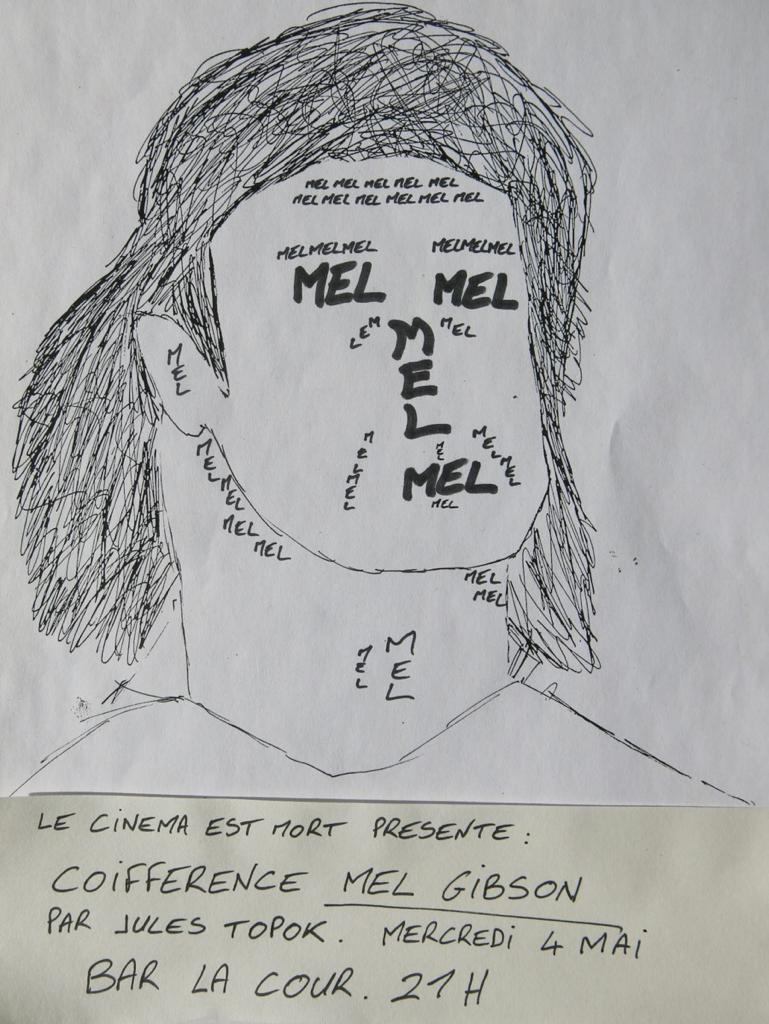 MEL MEL MEL MEL MEL
MEL MEL MEL MEL MEL MEL
MELMELMEL MELMELMEL
MEL MEL
MEL MEL
MEL
MEL
MEL
MELMEL
MEL
MELMEL
MEL
MEL
MEL
MEL
MEL
MEL
MEL
MEL
MEL
MEL
LE CINEMA EST MORT PRESENTE :
COIFFERENCE MEL GIBSON
PAR JULES TOPOK. MERCREDI 4 MAI
BAR LA COUR. 21H